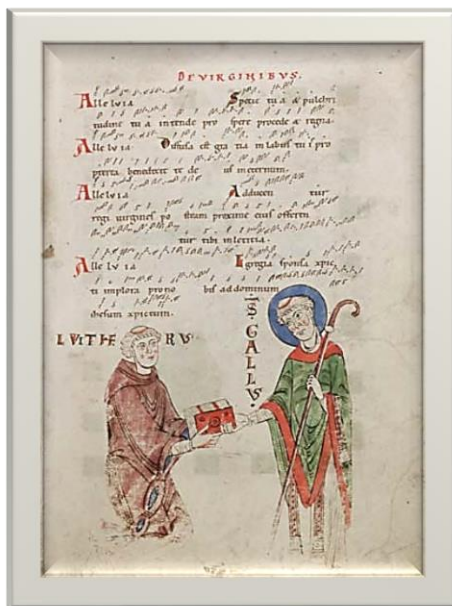 DE VIRGINIBVS.
Alle lvia Specie tu a & pulchri
tudine tu a intende pro spere procede & regna.
Alle lvia Diffusa est gra tia in labiis tu i pro
pterea benedixit te de us in eternum.
Alle lvia Adducen tur
regi virgines po st eam proxime eius offeren
tur tibi in leticia.
Alle lv ia Egregia sponsa xpi
implora pro no bis ad dominum
LVITHE RVS
S GALLVS